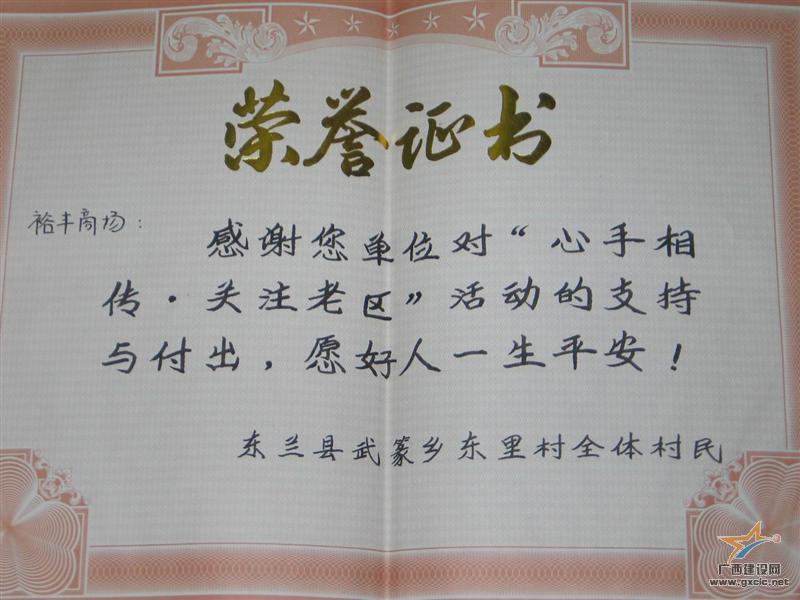 荣誉证书
裕丰商场：
感谢您单位对“心手相
传·关注老区”活动的支持
与付出，愿好人一生平安！
东兰县武篆乡东里村全体村民
广西建设网
www.gxcic.net